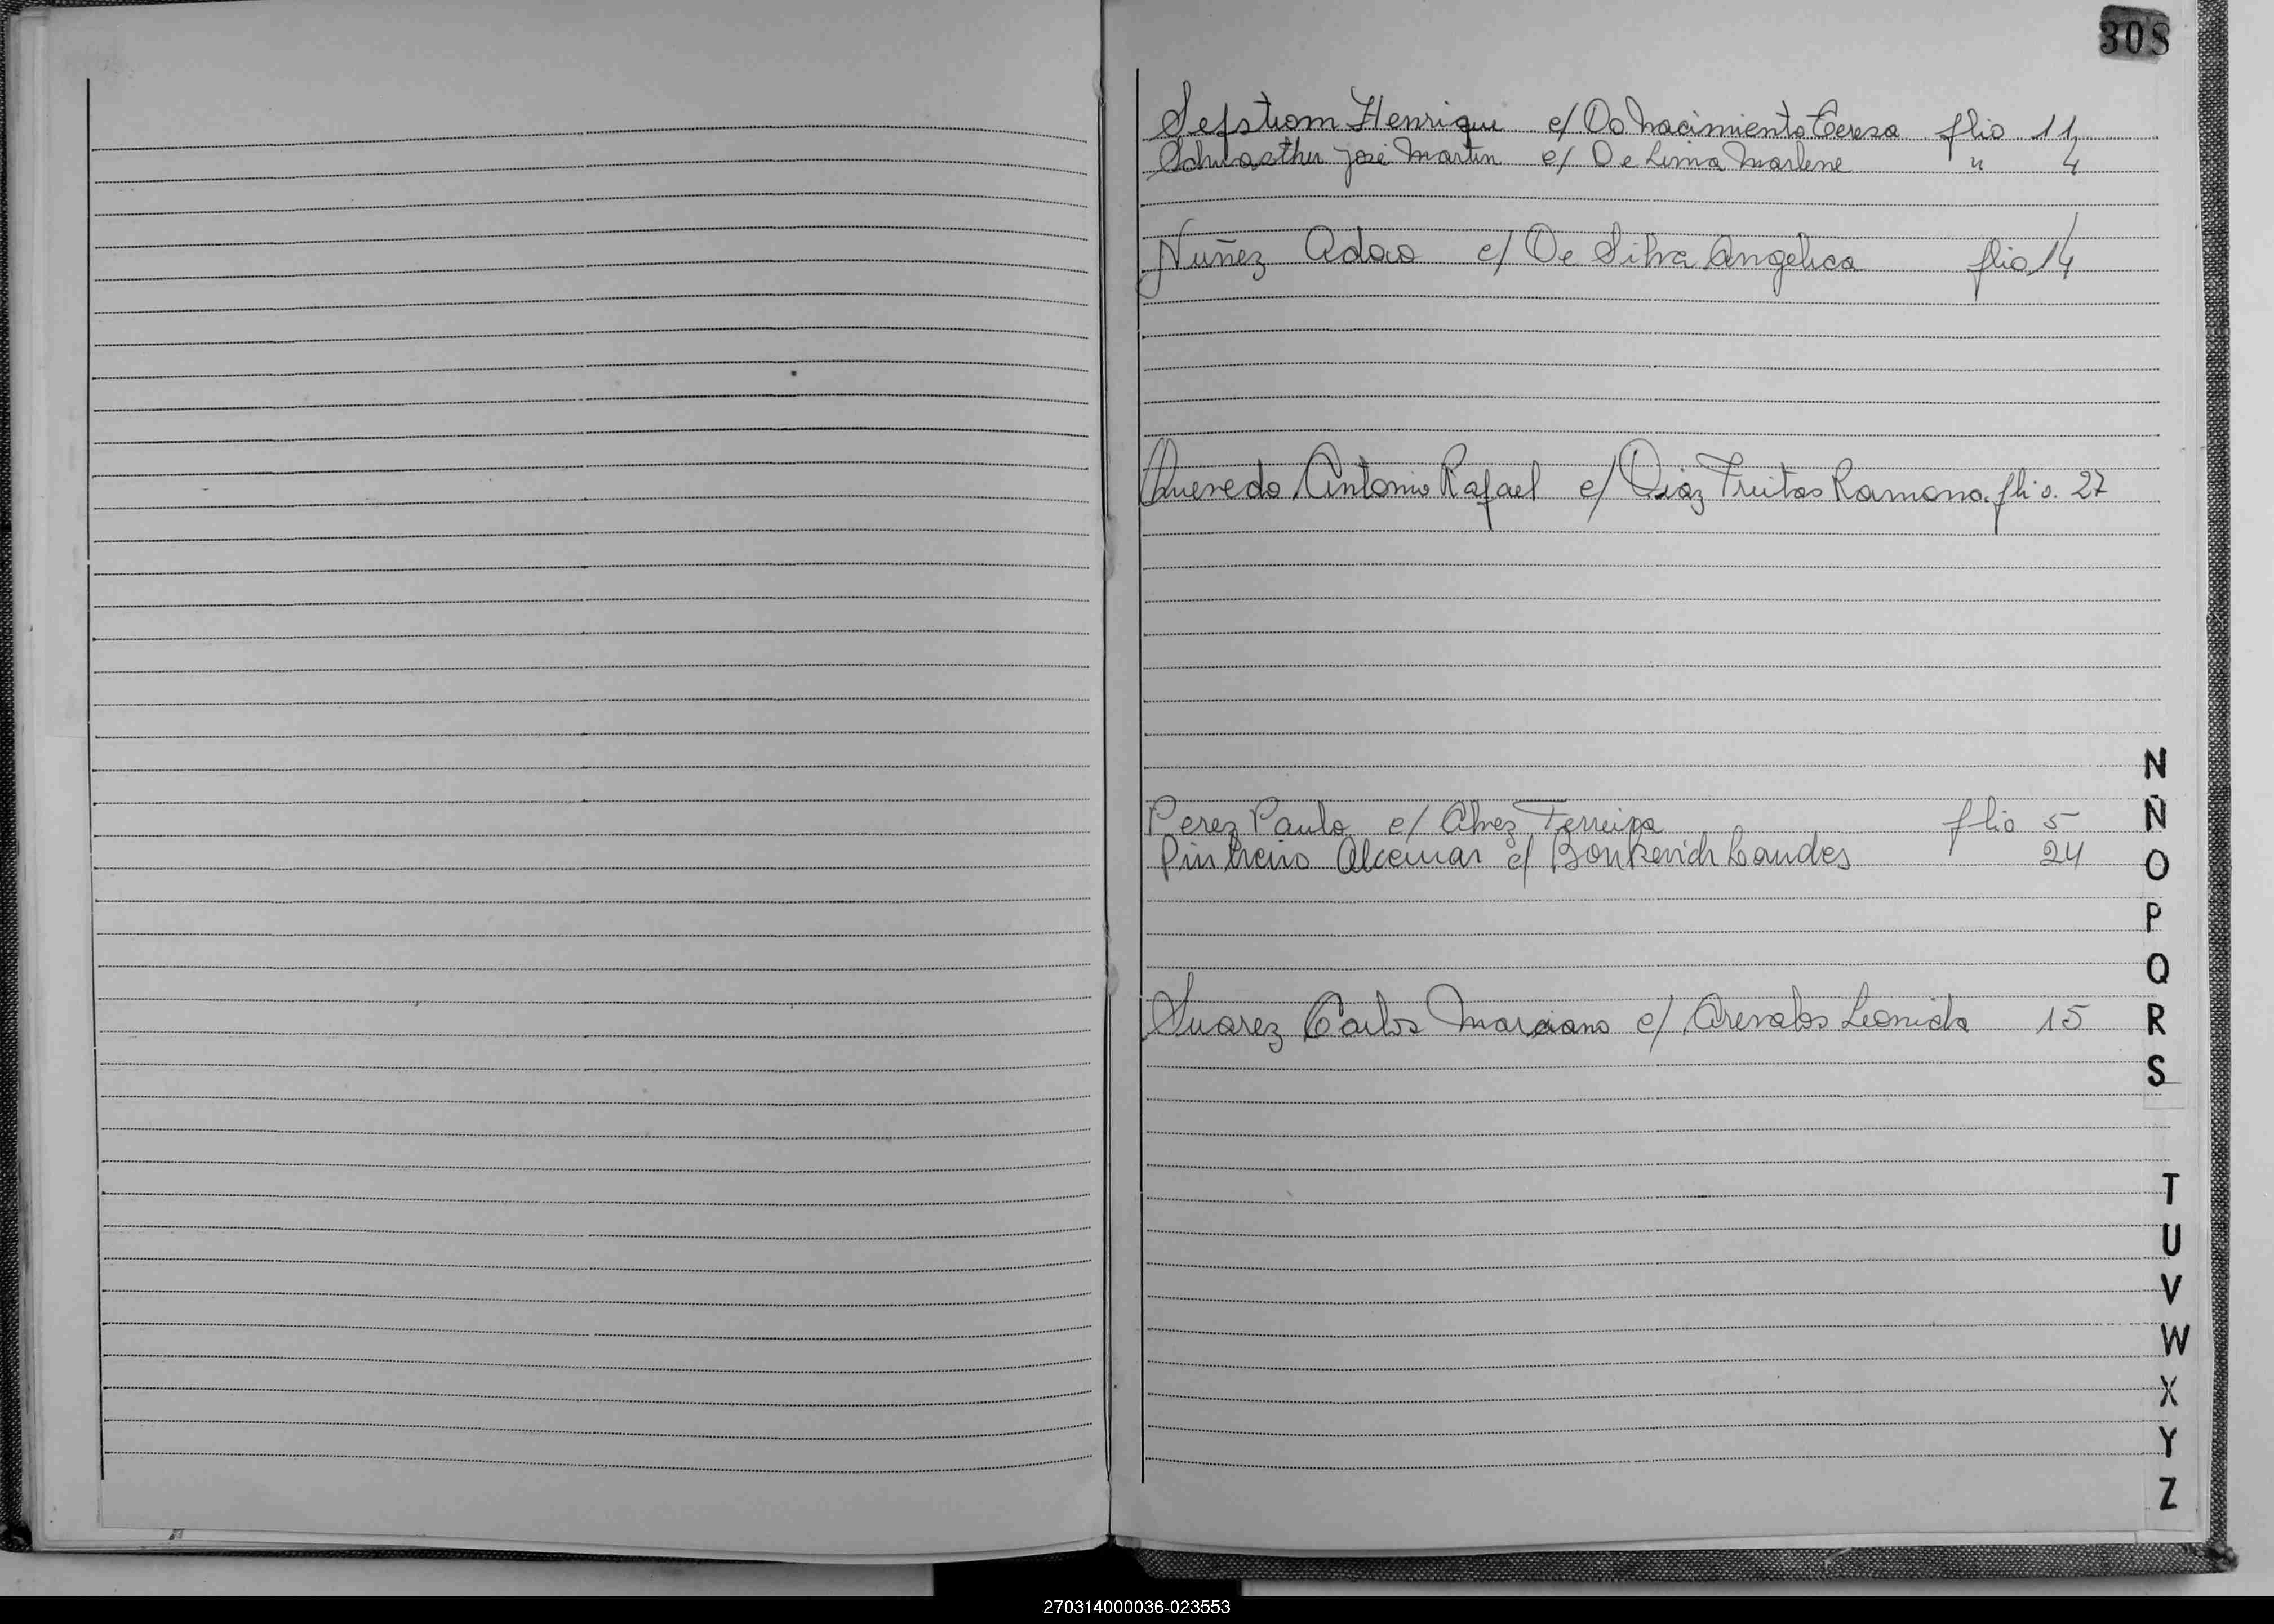 308
Sefstrom Henrique c/ Do Nacimiento Tereza flio 11
José Martin c/ De Lima Marlene " 4
Nuñez Adao c/ De Silva Angelica flio 14
Quevedo Antonio Rafael c/ Diaz Freitas Ramona. flio. 27
Perez Paulo c/ Alvez Terreira flio 5
Pinheiro Alcemar c/ Bonkevich Laudes 24
Suarez Carlos Marciano c/ Arevalos Leonida 15
N
Ñ
O
P
Q
R
S
T
U
V
W
X
Y
Z
270314000036-023553